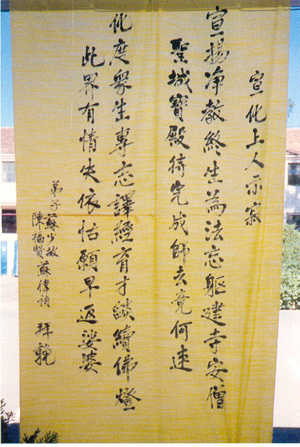 宣化上人示寂
宣揚净教終生為法忘軀建寺安僧
聖城寶殿待完成師去竟何速
化度眾生專志譯經育才談績佛燈
此界有情失依怙願早返娑婆
弟子蘇少敏
陳伯賢蘇偉順 拜輓